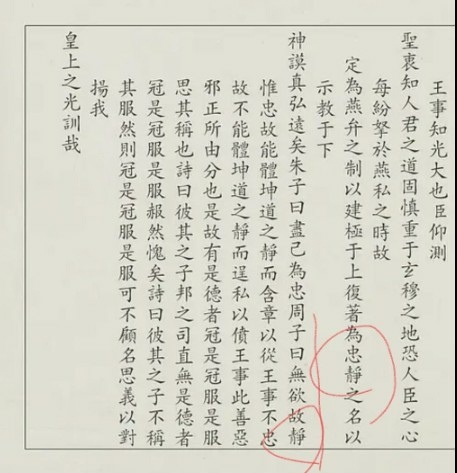 王事知光大也臣仰測
聖衷知人君之道固慎重于玄穆之地恐人臣之心
每紛拏於燕私之時故
定為燕弁之制以建極于上復著為忠靜之名以
示教于下
神謨真弘遠矣朱子曰盡己為忠周子曰無欲故靜
惟忠故能體坤道之靜而含章以從王事不忠
故不能體坤道之靜而逞私以僨王事此善惡
邪正所由分也是故有是德者冠是冠服是服
思其稱也詩曰彼其之子邦之司直無是德者
冠是冠服是服赧然愧矣詩曰彼其之子不稱
其服然則冠是冠服是服可不顧名思義以對
揚我
皇上之光訓哉